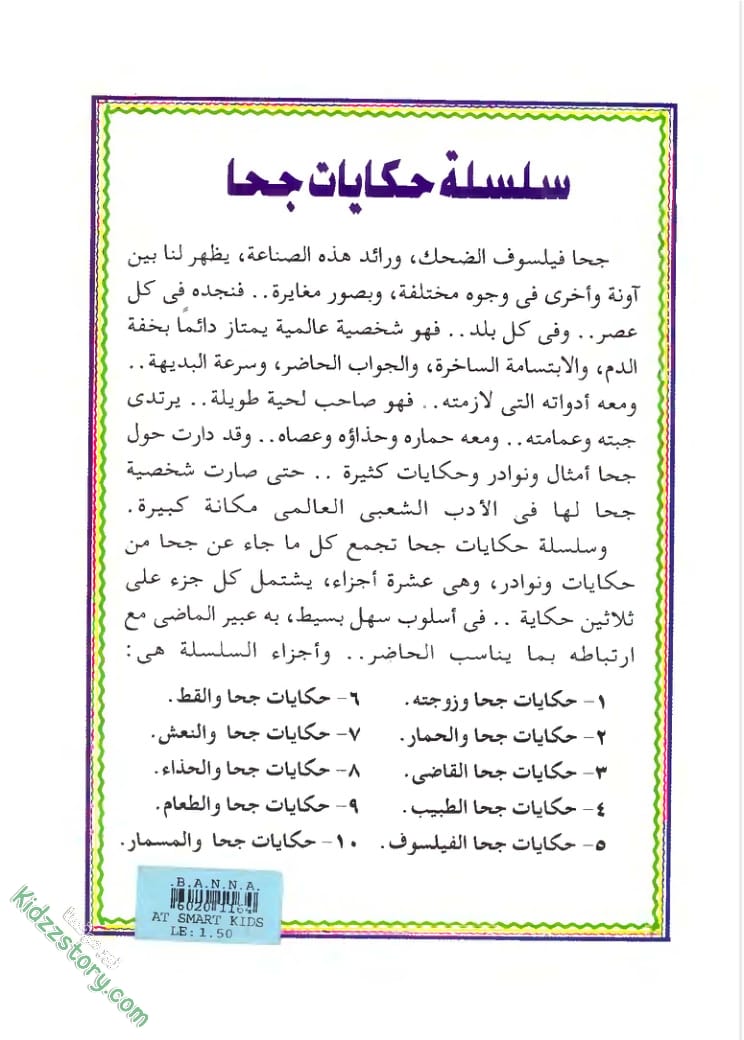 سلسلة حكايات جحا
جحا فيلسوف الضحك، ورائد هذه الصناعة، يظهر لنا بين
آونة وأخرى فى وجوه مختلفة، وبصور مغايرة.. فنجده فى كل
عصر.. وفى كل بلد.. فهو شخصية عالمية يمتاز دائمًا بخفة
الدم، والابتسامة الساخرة، والجواب الحاضر، وسرعة البديهة..
ومعه أدواته التى لازمته.. فهو صاحب لحية طويلة.. يرتدى
جبته وعمامته.. ومعه حماره وحذاؤه وعصاه.. وقد دارت حول
جحا أمثال ونوادر وحكايات كثيرة .. حتى صارت شخصية
جحا لها فى الأدب الشعبى العالمى مكانة كبيرة.
وسلسلة حكايات جحا تجمع كل ما جاء عن جحا من
حكايات ونوادر، وهى عشرة أجزاء، يشتمل كل جزء على
ثلاثين حكاية .. فى أسلوب سهل بسيط، به عبير الماضى مع
ارتباطه بما يناسب الحاضر.. وأجزاء السلسلة هى:
١- حكايات جحا وزوجته. ٦- حكايات جحا والقط.
٢- حكايات جحا والحمار. ٧- حكايات جحا والنعش.
٣- حكايات جحا القاضى. ٨- حكايات جحا والحذاء.
٤- حكايات جحا الطبيب. ٩- حكايات جحا والطعام.
٥- حكايات جحا الفيلسوف. ١٠- حكايات جحا والمسمار.
.B.A.N.N.A.
6020 1164
AT SMART KIDS
LE: 1.50
Kidzzstory.com